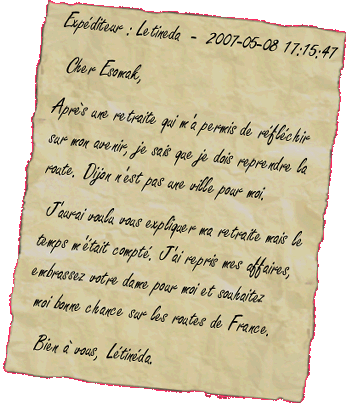 Expéditeur : Letineda - 2007-05-08 17:15:47
Cher Esomak,
Après une retraite qui m'a permis de réfléchir
sur mon avenir, je sais que je dois reprendre la
route. Dijon n'est pas une ville pour moi.
J'aurai voulu vous expliquer ma retraite mais le
temps m'était compté. J'ai repris mes affaires,
embrassez votre dame pour moi et souhaitez
moi bonne chance sur les routes de France.
Bien à vous, Létinéda.